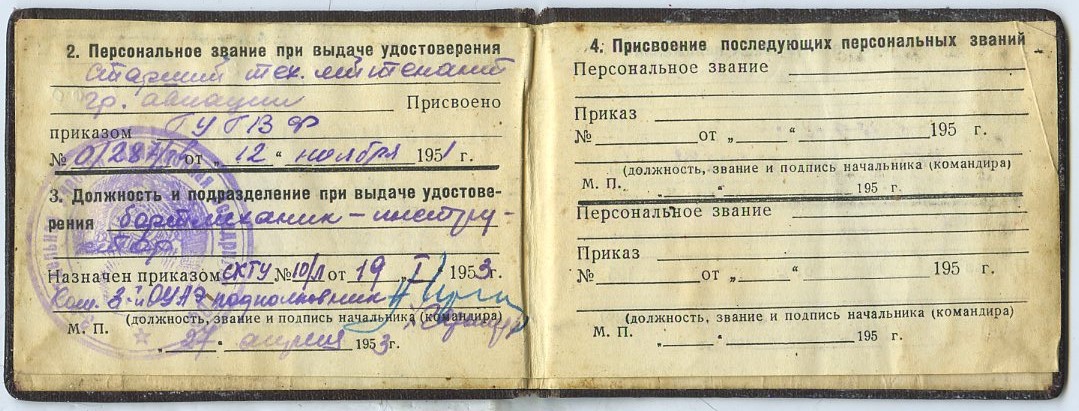 2. Персональное звание при выдаче удостоверения
Старший тех. лейтенант
гр. авиации Присвоено
приказом ГУГВФ
№ 0/287/л от „ 12 “ ноября 1951 г.
3. Должность и подразделение при выдаче удостове-
рения бортмеханик – инструк-
тор
Назначен приказом СКТУ № 10/л от 19 „ I / 1953 г.
Ком. 3-й ОУАЭ подполковник
(должность, звание и подпись начальника (командира)
М. П. „ 27 “ апреля 1953 г.
4. Присвоение последующих персональных званий
Персональное звание
Приказ
№ от „ “ 195 г.
(должность, звание и подпись начальника (командира)
М. П. „ “ 195 г.
Персональное звание
Приказ
№ от „ “ 195 г.
(должность, звание и подпись начальника (командира)
М. П. „ “ 195 г.